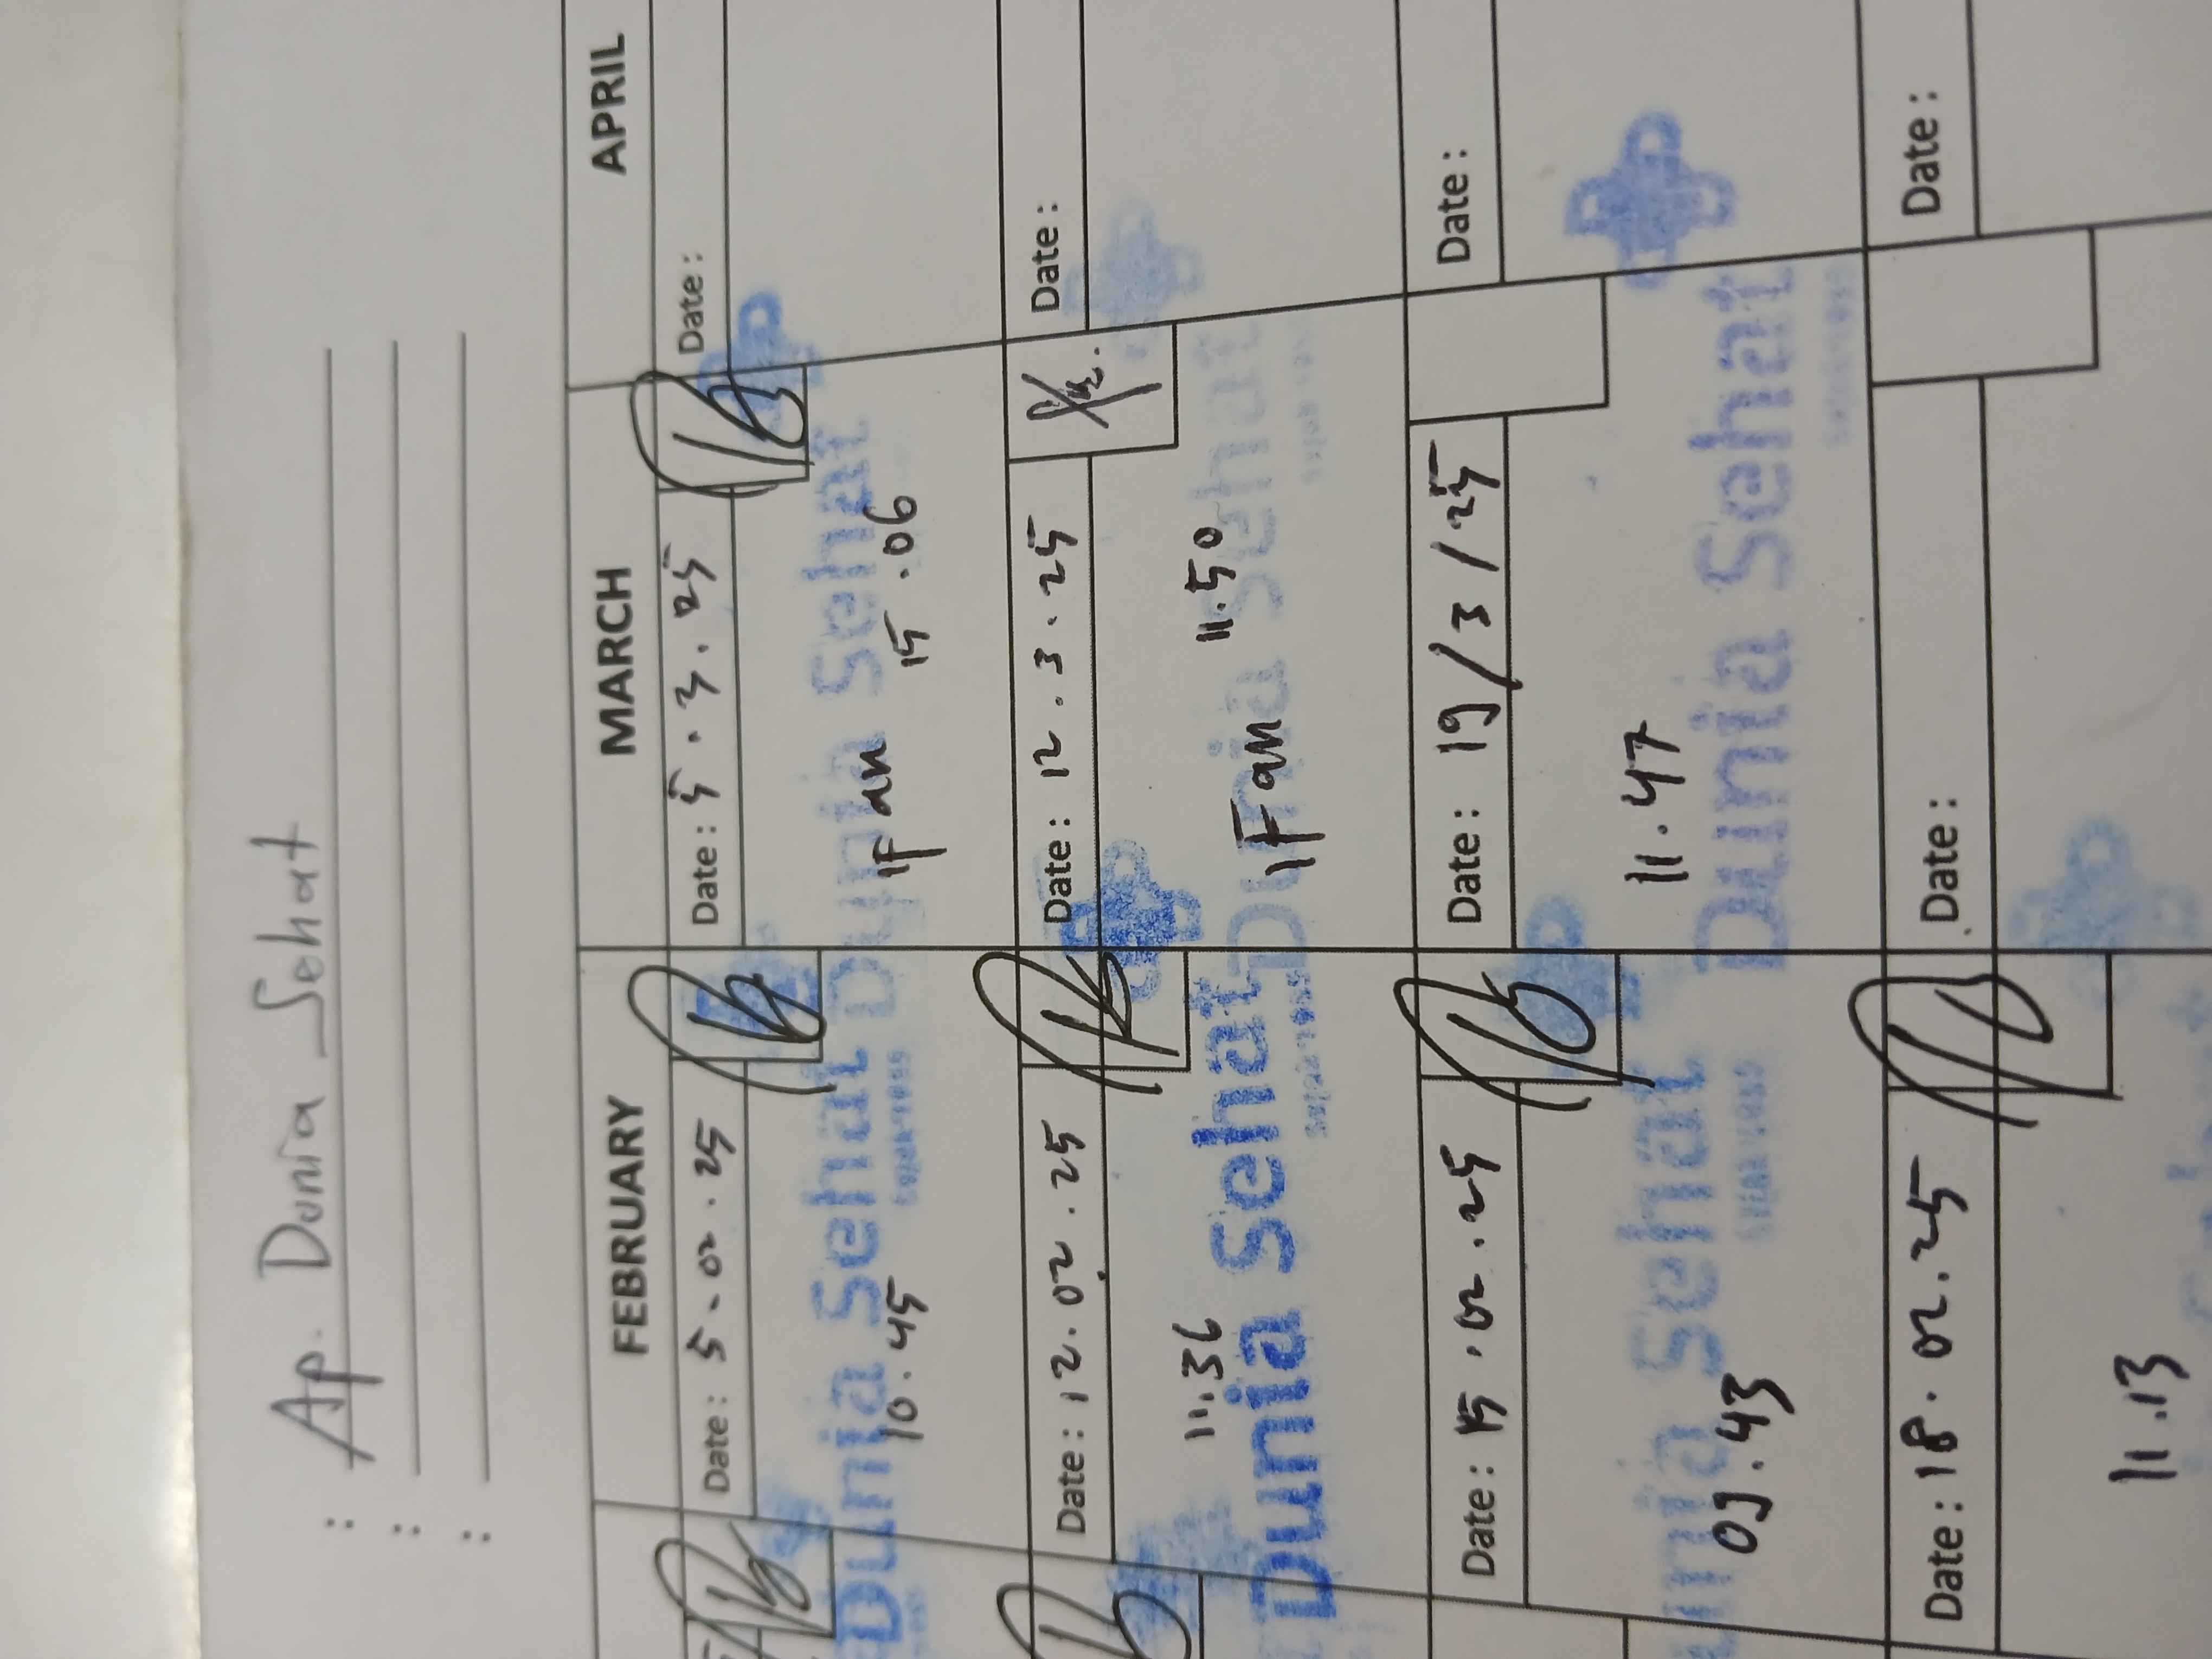 : Ap. Dunia Sehat
:
:
FEBRUARY MARCH APRIL
Date: 5.02.25 Date: 5.3.25 Date:
Dunia Sehat Dunia Sehat
10.45 IFan 15.06
Date: 12.02.25 Date: 12.3.25 Date:
11.36 IFan 11.50
Dunia Sehat Dunia Sehat
Date: 15.02.25 Date: 19/3/25 Date:
09.43 11.47
Dunia Sehat Dunia Sehat
Date: 18.02.25 Date: Date:
11.13